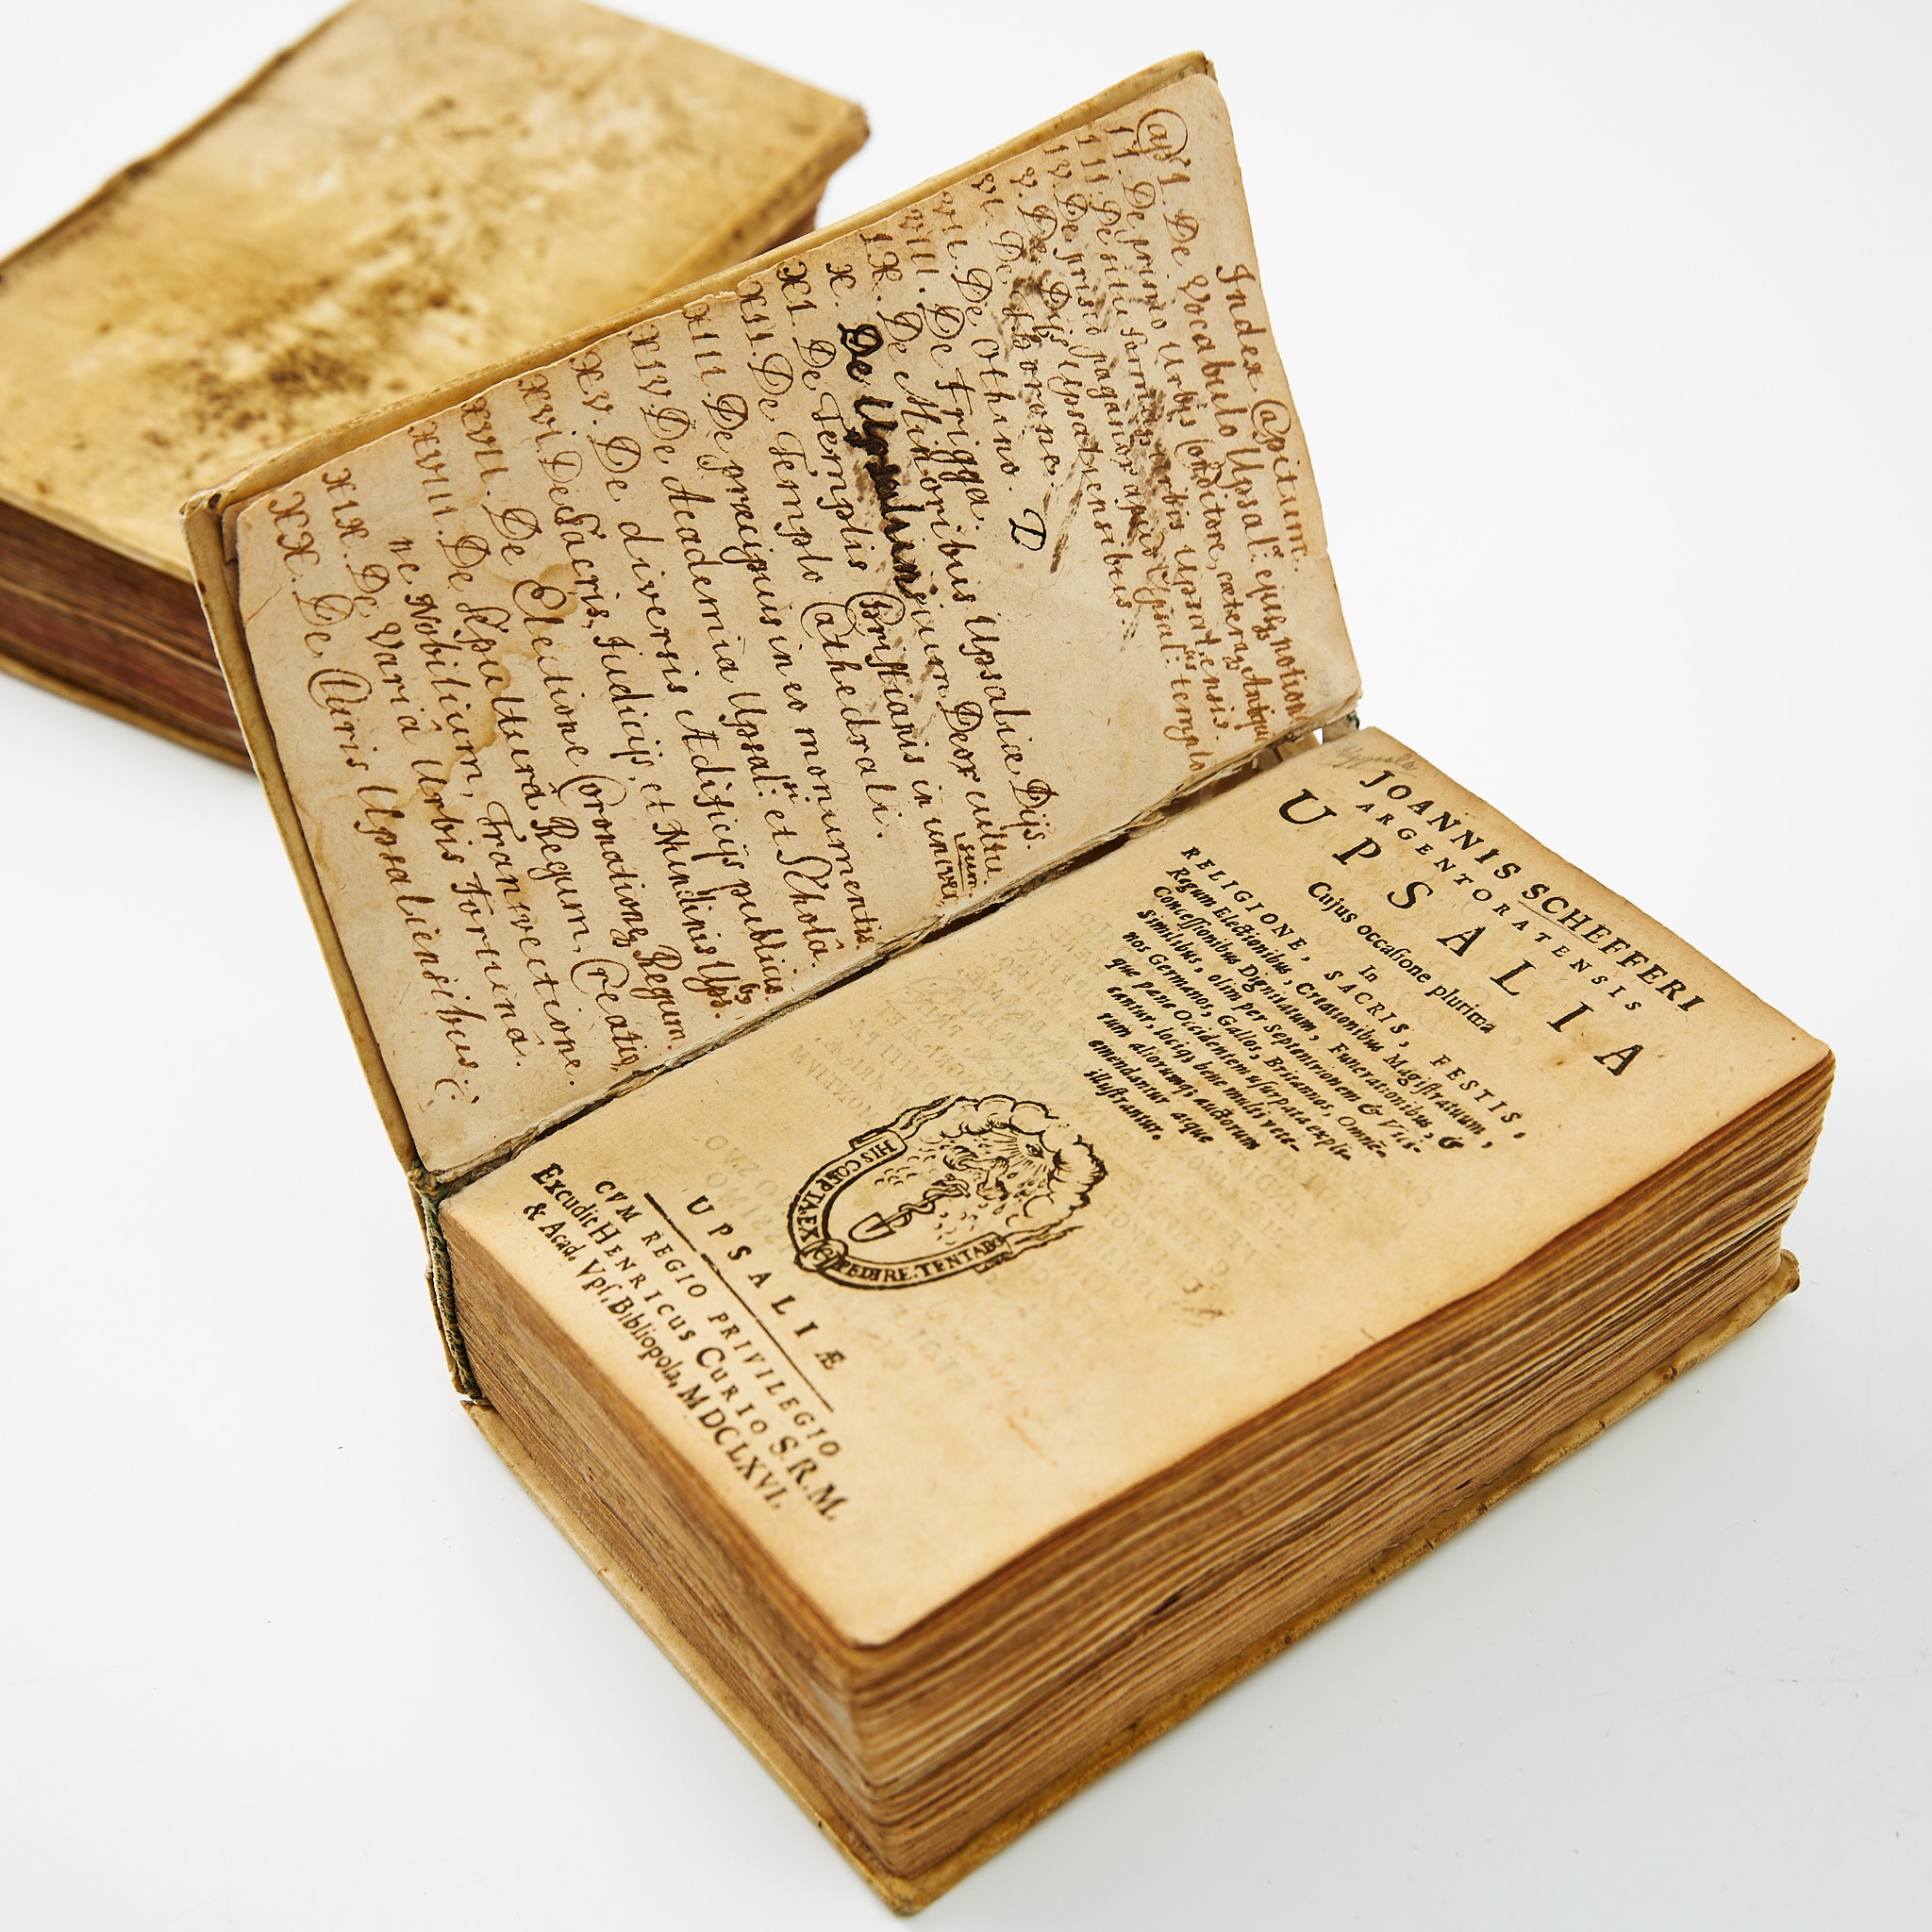 Index Capitum.
Cap. I. De Vocabulo Upsal: ejusq; notion
II. De primo Urbis Conditore, cæterisq; Antiqu
III. De situ formaq; urbis Upsalensis
IV. De prisco paganor apud Upsal: templo
V. De Dijs Upsaliensibus.
VI. De Thorone.
VII. De Othino. D
VIII. De Frigga.
IX. De Minoribus Upsaliæ Dijs.
X. De Upsaliensium Deor cultu
XI. De Templis Christianis in univer
sum
XII. De Templo Cathedrali.
XIII. De præcipuis in eo monumentis
XIV. De Academia Upsal: et Scholâ.
XV. De diversis Ædificijs publicis
XVI. De Sacris, Judicijs, et Nundinis Ups.
XVII. De Electione Coronationeq; Regum
XVIII. De Sepulturâ Regum, Creatio
ne Nobilium, Tranvectione.
XIX. De Variâ Urbis Fortunâ.
XX. De Claris Upsaliensibus.
JOANNIS SCHEFFERI
ARGENTORATENSIS
UPSALIA
Cujus occasione plurima
In
RELIGIONE, SACRIS, FESTIS,
Regum Electionibus, Creationibus Magistratuum,
Concessionibus Dignitatum, Funerationibus, &
Similibus, olim per Septentrionem & Vici-
nos Germanos, Gallos, Britannos, Omne-
que pane Occidentem usurpata expli-
cantur, locisq; bene multi vete-
rum aliorumq; auctorum
emendantur atque
illustrantur.
HIS COEPTA EX PEDIRE. TENTABO
UPSALIÆ
CVM REGIO PRIVILEGIO
Excudit HENRICUS CURIO S.R.M.
& Acad. Vps. Bibliopola, MDCLXVI.